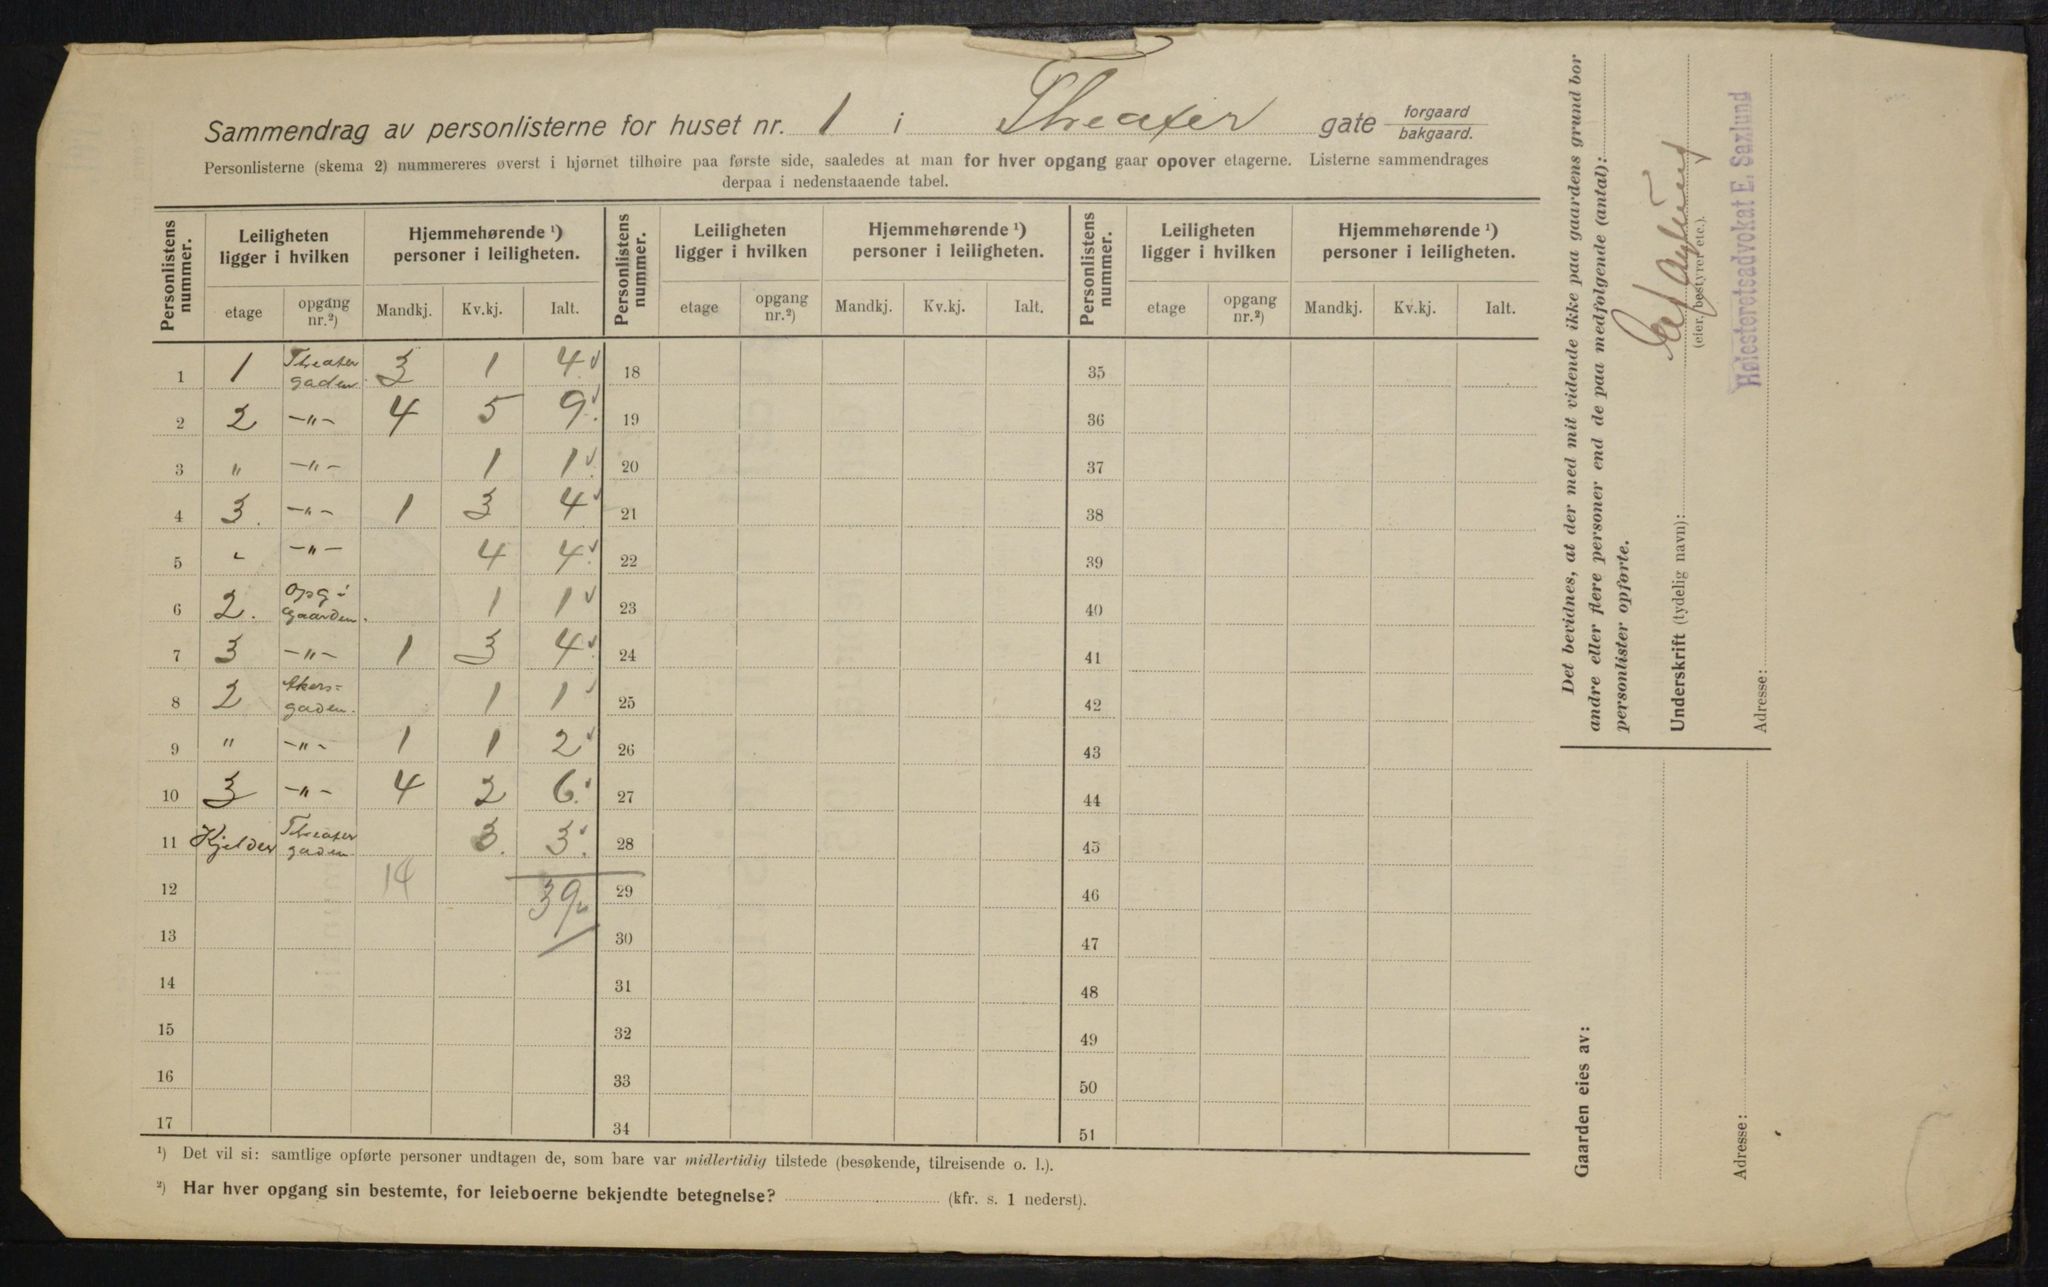 Sammendrag av personlisterne for huset nr. 1 i Theater gate forgaard
bakgaard.
Personlisterne (skema 2) nummereres øverst i hjørnet tilhøire paa første side, saaledes at man for hver opgang gaar opover etagerne. Listerne sammendrages
derpaa i nedenstaaende tabel.
Personlistens nummer. Leiligheten ligger i hvilken Hjemmehørende ¹) personer i leiligheten. Personlistens nummer. Leiligheten ligger i hvilken Hjemmehørende ¹) personer i leiligheten. Personlistens nummer. Leiligheten ligger i hvilken Hjemmehørende ¹) personer i leiligheten.
etage opgang nr.²) Mandkj. Kv.kj. Ialt. etage opgang nr.²) Mandkj. Kv.kj. Ialt. etage opgang nr.²) Mandkj. Kv.kj. Ialt.
1 1 Theater gaden 3 1 4 18 35
2 2 -"- 4 5 9 19 36
3 " -"- 1 1 20 37
4 3. -"- 1 3 4 21 38
5 " -"- 4 4 22 39
6 2. Opg i gaarden. 1 1 23 40
7 3 -"- 1 3 4 24 41
8 2 Akers= gaden. 1 1 25 42
9 " -"- 1 1 2 26 43
10 3 -"- 4 2 6 27 44
11 Kjelder Theater gaden 3. 3. 28 45
12 14 39 29 46
13 30 47
14 31 48
15 32 49
16 33 50
17 34 51
¹) Det vil si: samtlige opførte personer undtagen de, som bare var midlertidig tilstede (besøkende, tilreisende o. l.).
²) Har hver opgang sin bestemte, for leieboerne bekjendte betegnelse? (kfr. s. 1 nederst).
Det bevidnes, at der med mit vidende ikke paa gaardens grund bor
andre eller flere personer end de paa medfølgende (antal):
personlister opførte.
Underskrift (tydelig navn):
(eier, bestyrer etc.).
Høiesteretsadvokat E. Saxlund
Adresse:
Gaarden eies av:
Adresse: